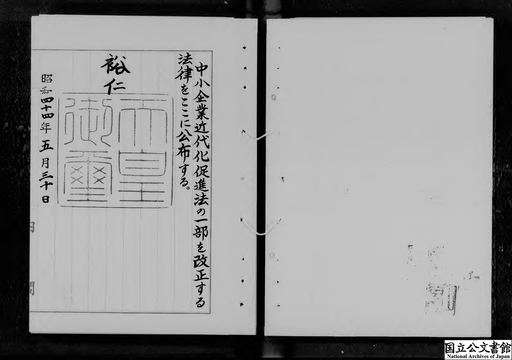 中小企業近代化促進法の一部を改正する
法律をここに公布する。
裕仁
天皇
御璽
昭和四十四年五月三十日
内閣
国立公文書館
National Archives of Japan